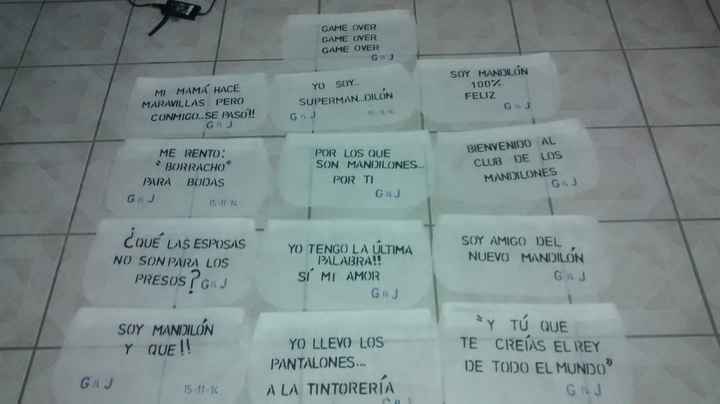 GAME OVER
GAME OVER
GAME OVER
G & J
MI MAMÁ HACE
MARAVILLAS PERO
CONMIGO...SE PASÓ!!
G & J
YO SOY..
SUPERMAN...DILÓN
G & J
SOY MANDILÓN
100%
FELIZ
G & J
ME RENTO:
"BORRACHO"
PARA BODAS
G & J
15-11-14
POR LOS QUE
SON MANDILONES...
POR TI
G & J
BIENVENIDO AL
CLUB DE LOS
MANDILONES
G & J
¿QUÉ LAS ESPOSAS
NO SON PARA LOS
PRESOS?
G & J
YO TENGO LA ÚLTIMA
PALABRA!!
SÍ MI AMOR
G & J
SOY AMIGO DEL
NUEVO MANDILÓN
G & J
SOY MANDILÓN
Y QUE!!
G & J
15-11-14
YO LLEVO LOS
PANTALONES...
A LA TINTORERÍA
G & J
"Y TÚ QUE
TE CREÍAS EL REY
DE TODO EL MUNDO"
G & J